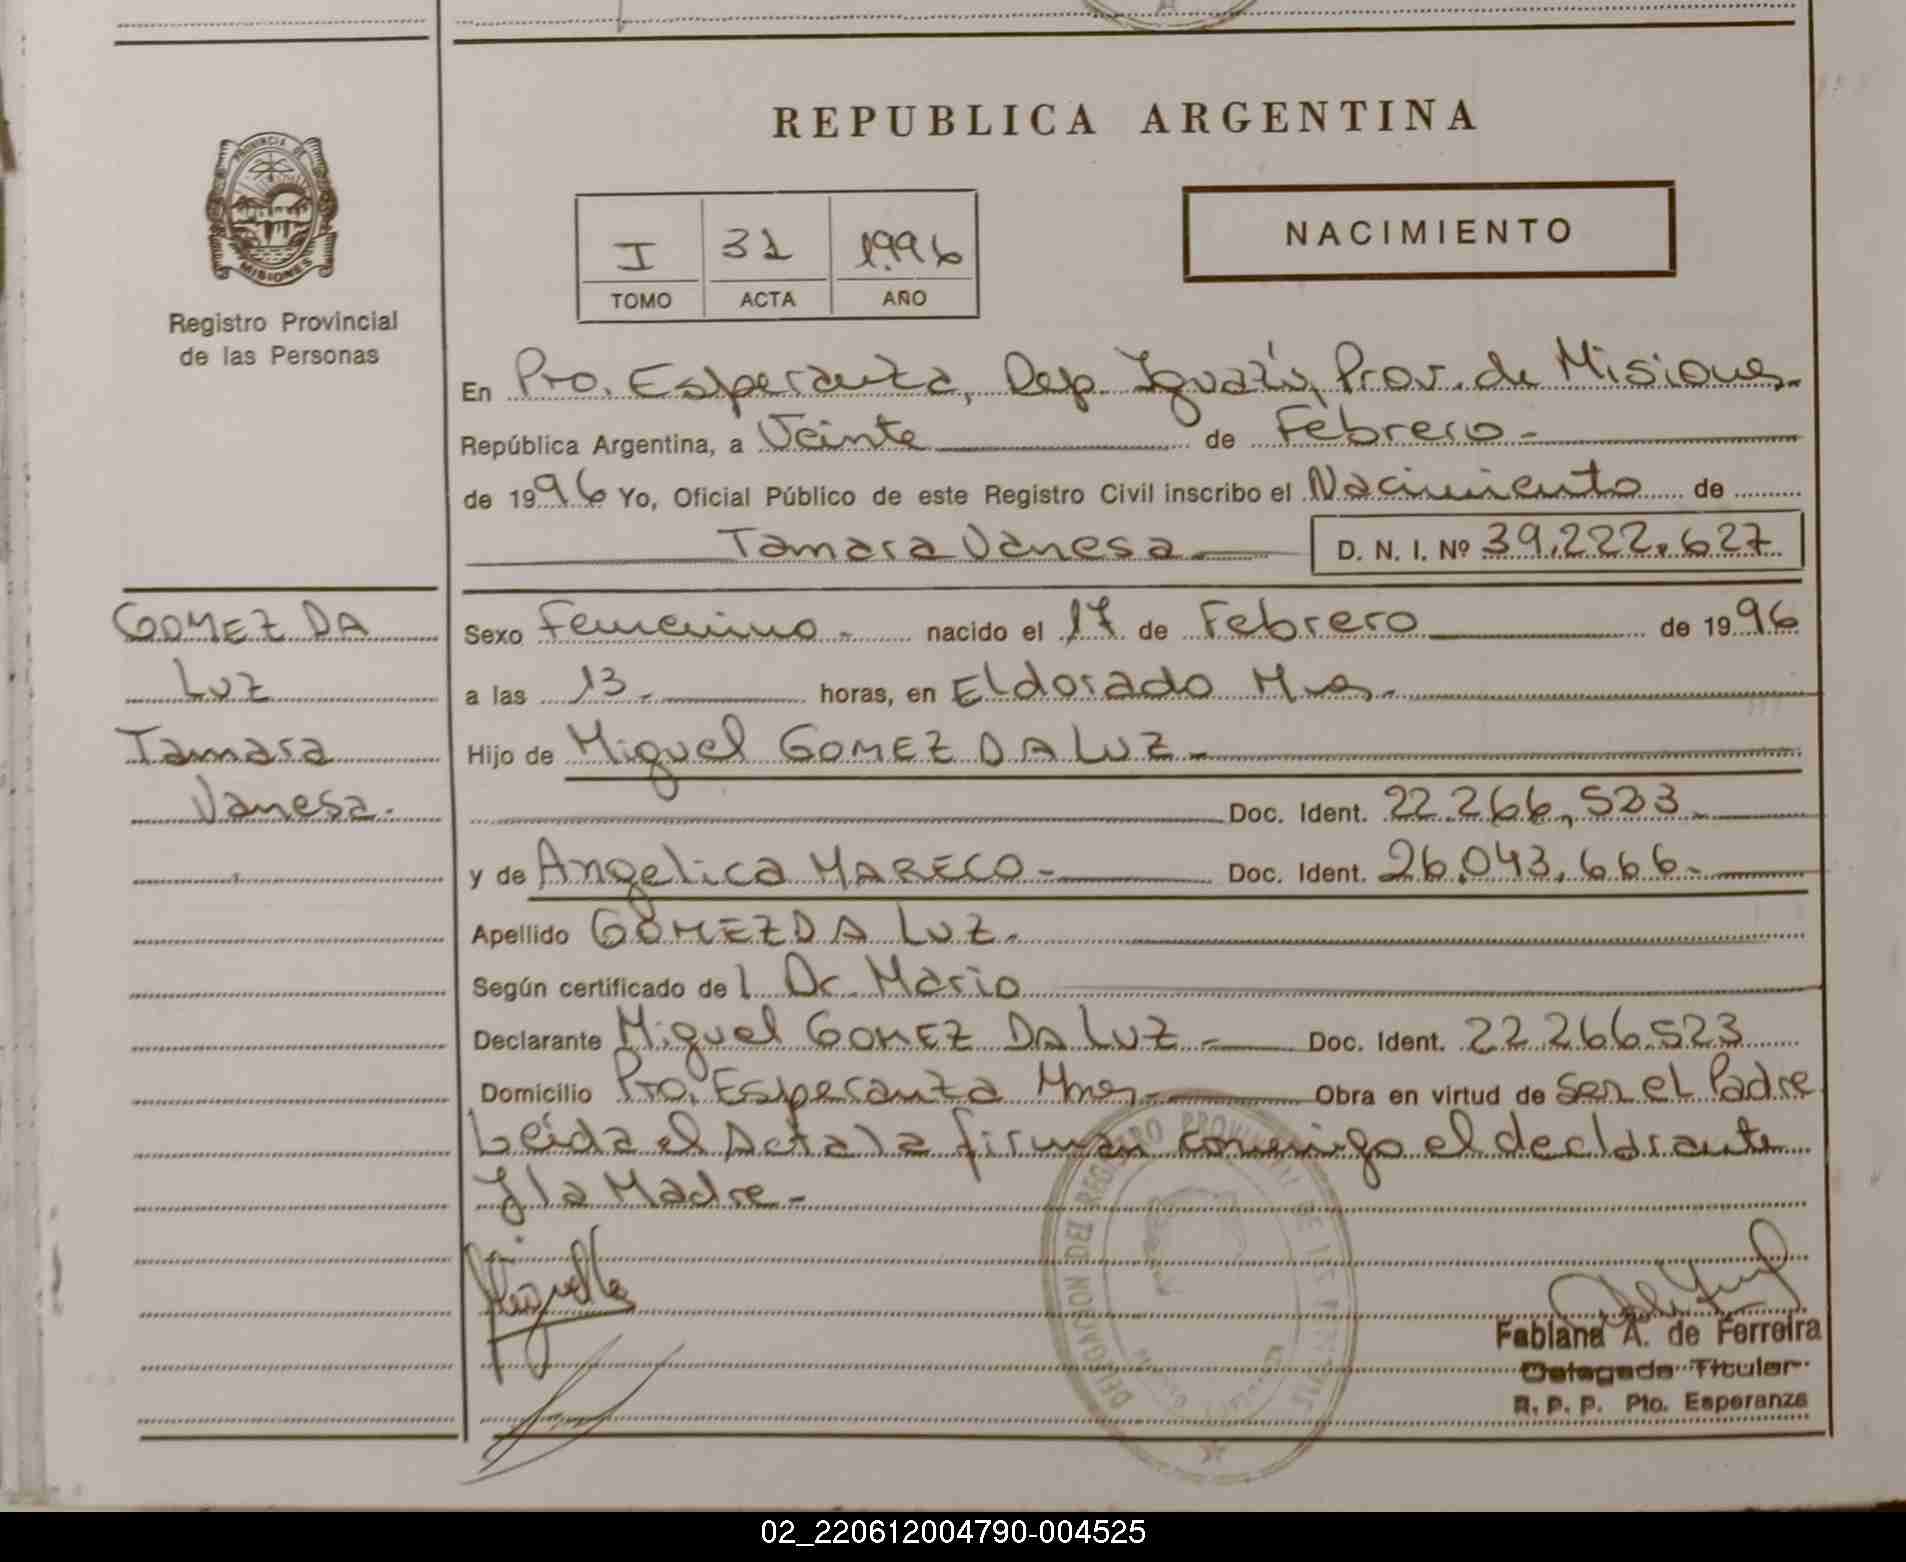 PROVINCIA DE
MISIONES
Registro Provincial
de las Personas
REPUBLICA ARGENTINA
NACIMIENTO
I 31 1996
TOMO ACTA AÑO
En Pto. Esperanza, Dep. Iguazú, Prov. de Misiones.-
República Argentina, a Veinte de Febrero.-
de 1996 Yo, Oficial Público de este Registro Civil inscribo el Nacimiento de
Tamara Vanesa D. N. I. Nº 39.222.627
GOMEZ DA
LUZ
Tamara
Vanesa.
Sexo Femenino.- nacido el 17 de Febrero de 1996
a las 13.- horas, en Eldorado Mnes.-
Hijo de Miguel GOMEZ DA LUZ.-
Doc. Ident. 22.266.523.-
y de Angelica MARECO.- Doc. Ident. 26.043.666.-
Apellido GOMEZ DA LUZ.-
Según certificado de l Dr. Mario
Declarante Miguel GOMEZ DA LUZ.- Doc. Ident. 22.266.523
Domicilio Pto. Esperanza Mnes.- Obra en virtud de Ser el Padre
Leída el Acta la firman conmigo el declarante
y la Madre.-
DELEGACION DEL REGISTRO PROVINCIAL DE LAS PERSONAS
Fabiana A. de Ferreira
Delegada Titular
R. P. P. Pto. Esperanza
02_220612004790-004525